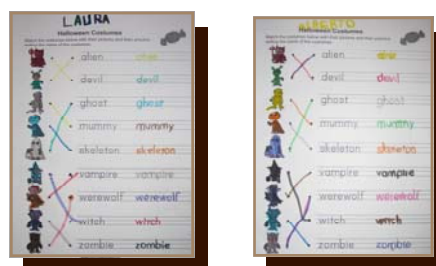 LAURA
Halloween Costumes
alien alien
devil devil
ghost ghost
mummy mummy
skeleton skeleton
vampire vampire
werewolf werewolf
witch witch
zombie zombie
ALBERTO
Halloween Costumes
alien alien
devil devil
ghost ghost
mummy mummy
skeleton skeleton
vampire vampire
werewolf werewolf
witch witch
zombie zombie